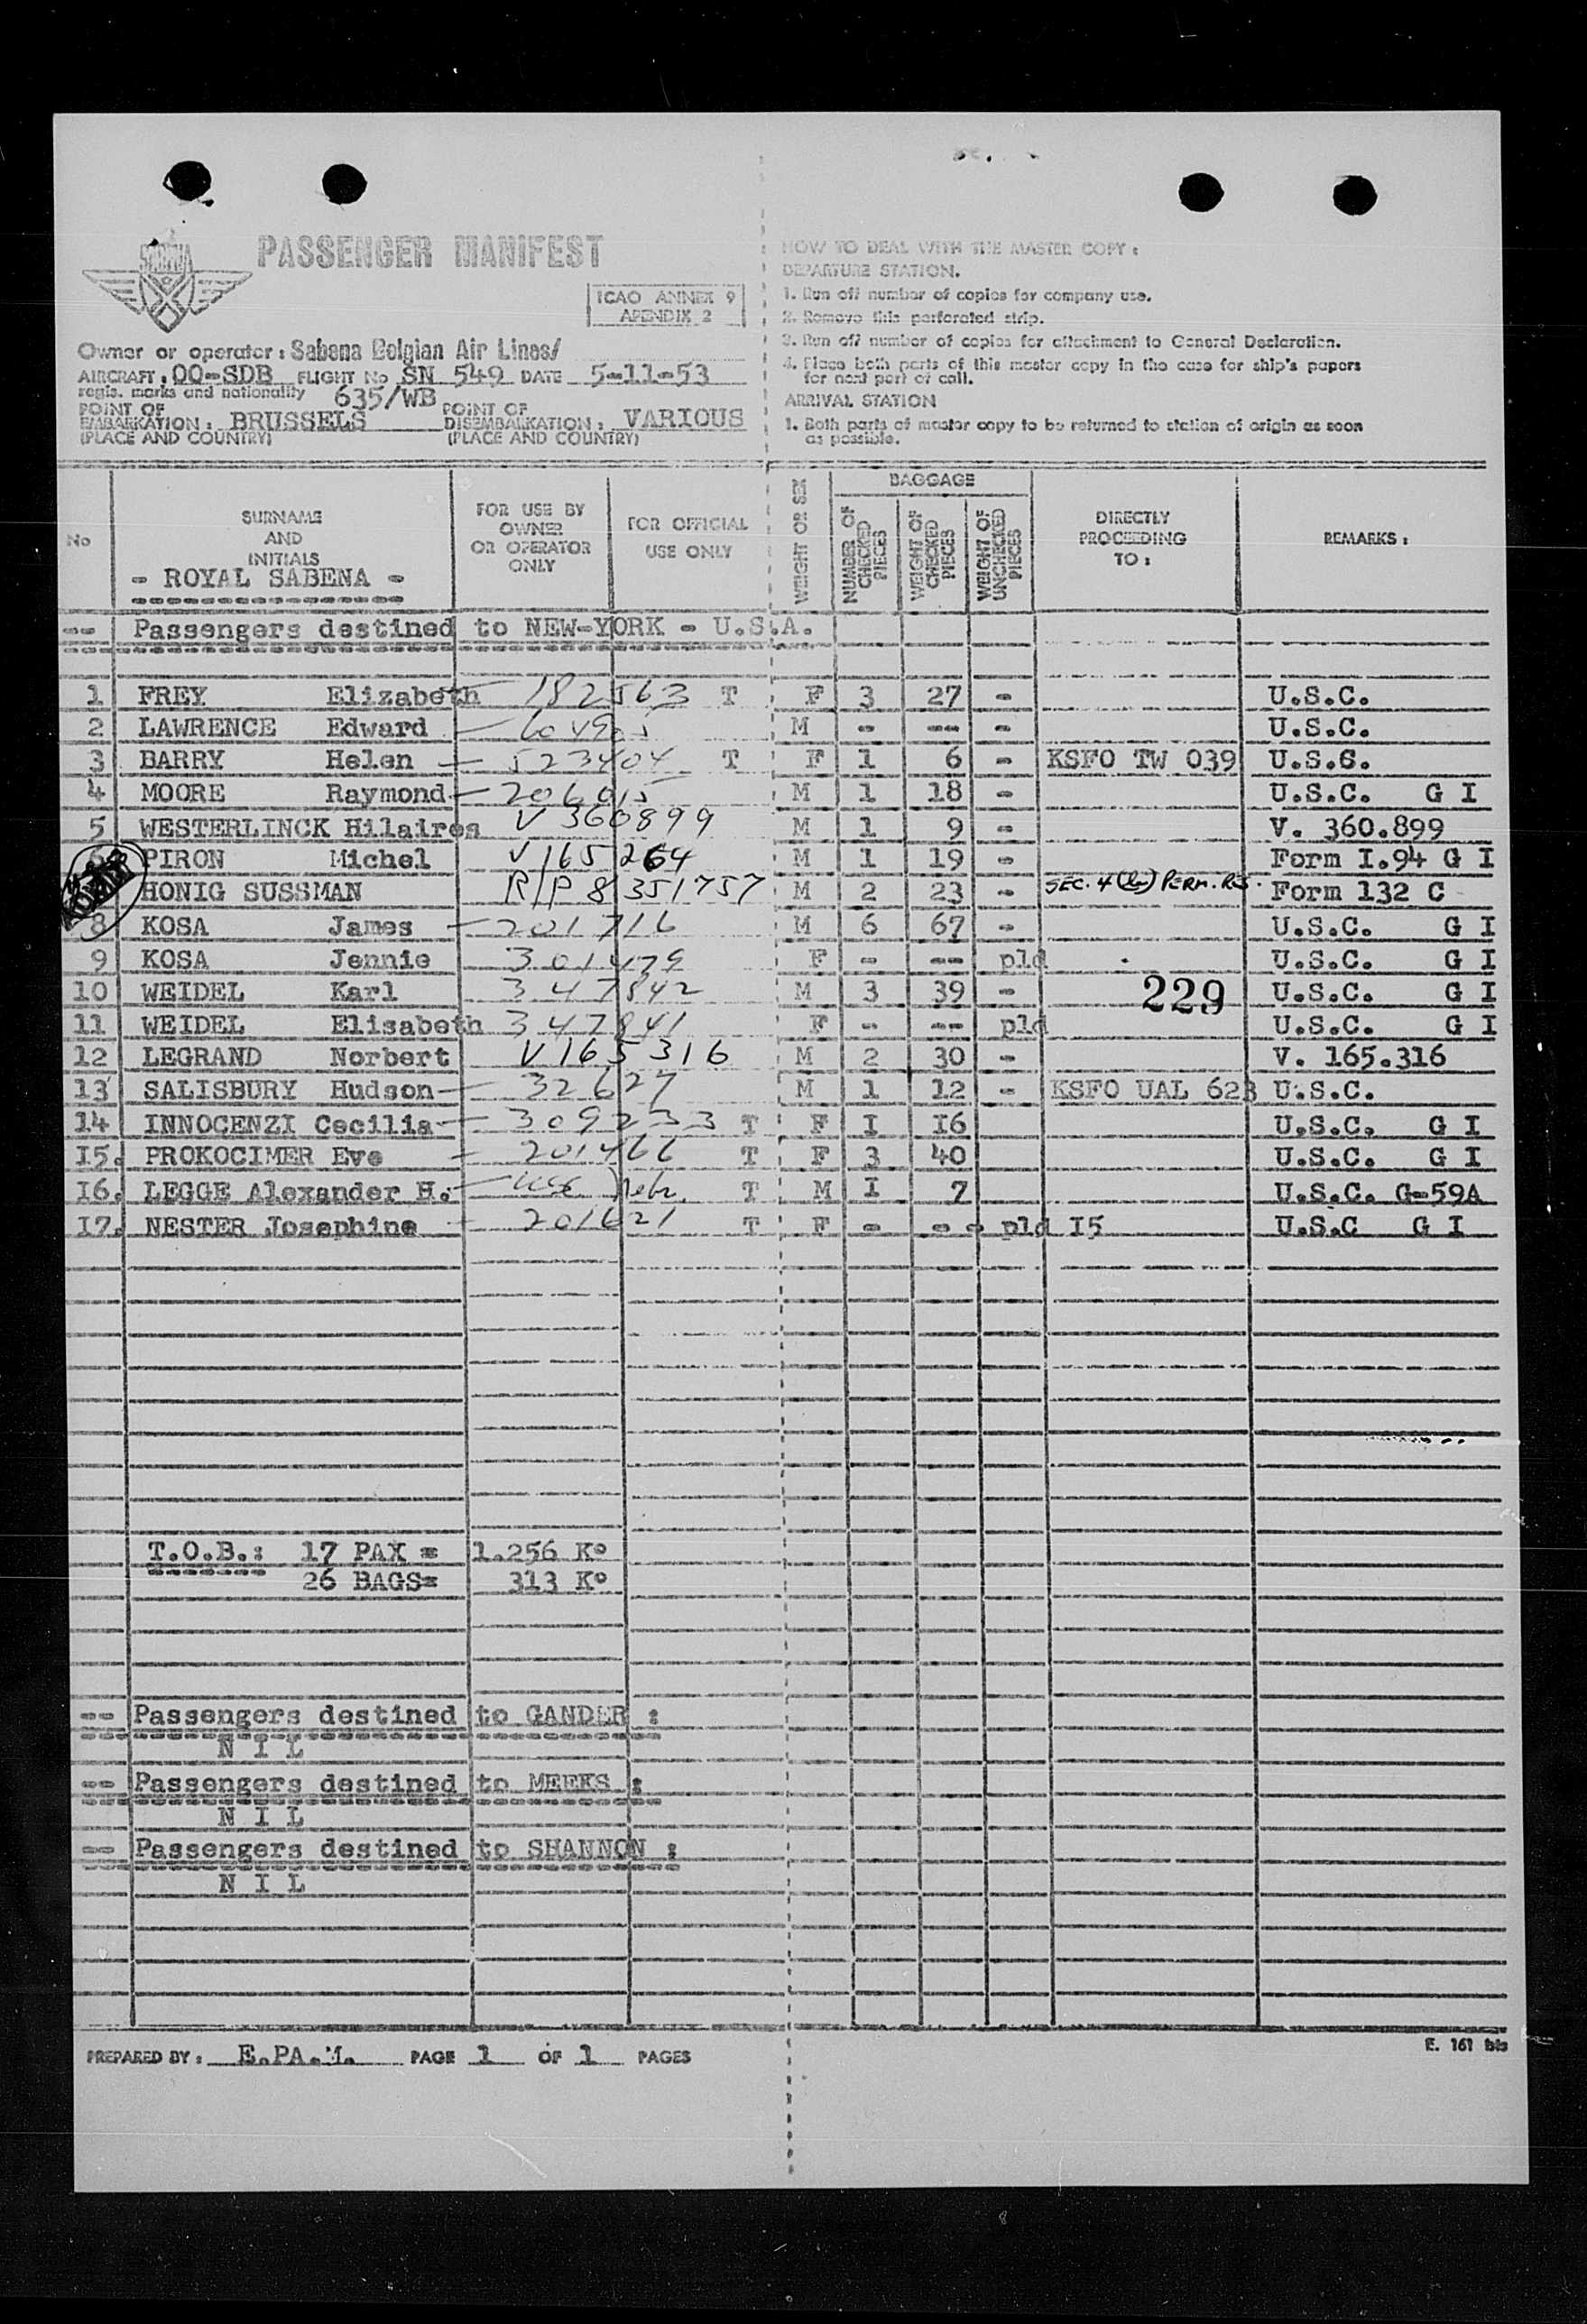 SABENA
PASSENGER MANIFEST
ICAO ANNEX 9
APENDIX 2
Owner or operator : Sabena Belgian Air Lines/
AIRCRAFT : OO-SDB FLIGHT No SN 549 DATE 5-11-53
regis. marks and nationality 635/WB
POINT OF EMBARKATION : BRUSSELS POINT OF DISEMBARKATION : VARIOUS
(PLACE AND COUNTRY) (PLACE AND COUNTRY)
HOW TO DEAL WITH THE MASTER COPY :
DEPARTURE STATION.
1. Run off number of copies for company use.
2. Remove this perforated strip.
3. Run off number of copies for attachment to General Declaration.
4. Place both parts of this master copy in the case for ship's papers
for next port of call.
ARRIVAL STATION
1. Both parts of master copy to be returned to station of origin as soon
as possible.
No
SURNAME
AND
INITIALS
- ROYAL SABENA -
FOR USE BY
OWNER
OR OPERATOR
ONLY
FOR OFFICIAL
USE ONLY
WEIGHT OR SEX
BAGGAGE
NUMBER OF CHECKED PIECES
WEIGHT OF CHECKED PIECES
WEIGHT OF UNCHECKED PIECES
DIRECTLY
PROCEEDING
TO :
REMARKS :
-- Passengers destined to NEW-YORK - U.S.A.
1 FREY Elizabeth 182563 T F 3 27 - U.S.C.
2 LAWRENCE Edward M - -- - U.S.C.
3 BARRY Helen 523404 T F 1 6 - KSFO TW 039 U.S.S.
4 MOORE Raymond 206015 M 1 18 - U.S.C. G I
5 WESTERLINCK Hilaires V 360899 M 1 9 - V. 360.899
6 PIRON Michel V 165264 M 1 19 - Form I.94 G I
HONIG SUSSMAN R/P 8351757 M 2 23 - SEC. 4 PERM. RES. Form 132 C
8 KOSA James 201716 M 6 67 - U.S.C. G I
9 KOSA Jennie 301479 F - -- pld U.S.C. G I
10 WEIDEL Karl 347842 M 3 39 - U.S.C. G I
229
11 WEIDEL Elisabeth 347841 F - -- pld U.S.C. G I
12 LEGRAND Norbert V 165316 M 2 30 - V. 165.316
13 SALISBURY Hudson 32627 M 1 12 - KSFO UAL 623 U.S.C.
14 INNOCENZI Cecilia 309233 T F I I6 U.S.C. G I
I5. PROKOCIMER Eve 201466 T F 3 40 U.S.C. G I
I6. LEGGE Alexander H. T M I 7 U.S.C. G-59A
I7. NESTER Josephine 201621 T F - - - pld I5 U.S.C G I
T.O.B.: 17 PAX = 1.256 K°
26 BAGS= 313 K°
-- Passengers destined to GANDER :
N I L
-- Passengers destined to MEEKS :
N I L
-- Passengers destined to SHANNON :
N I L
PREPARED BY : E.PA.M. PAGE 1 OF 1 PAGES
E. 161 bis